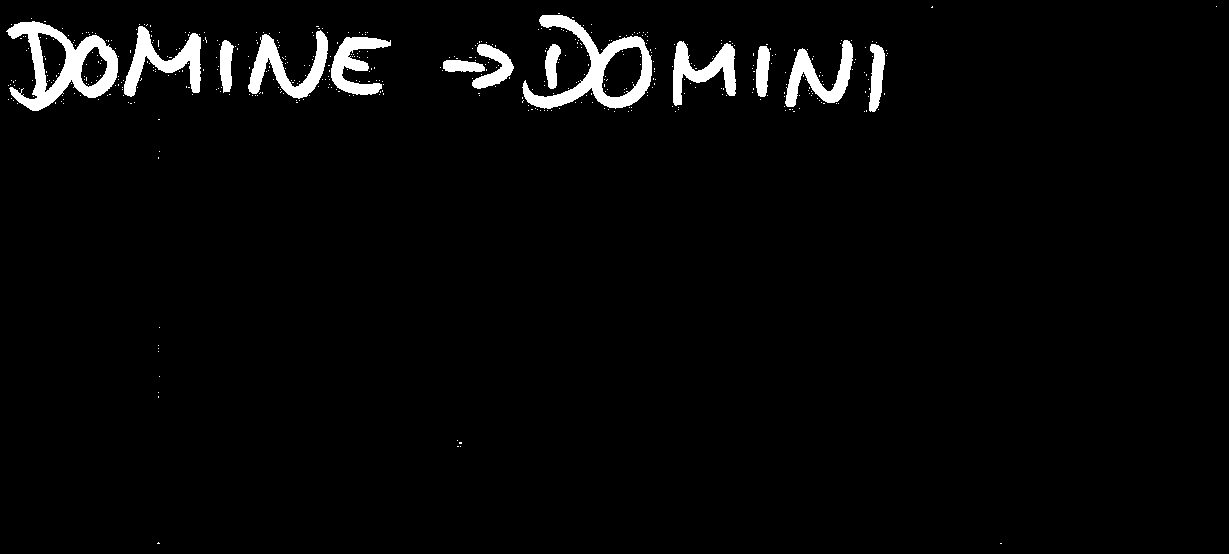 DOMINE → DOMINI